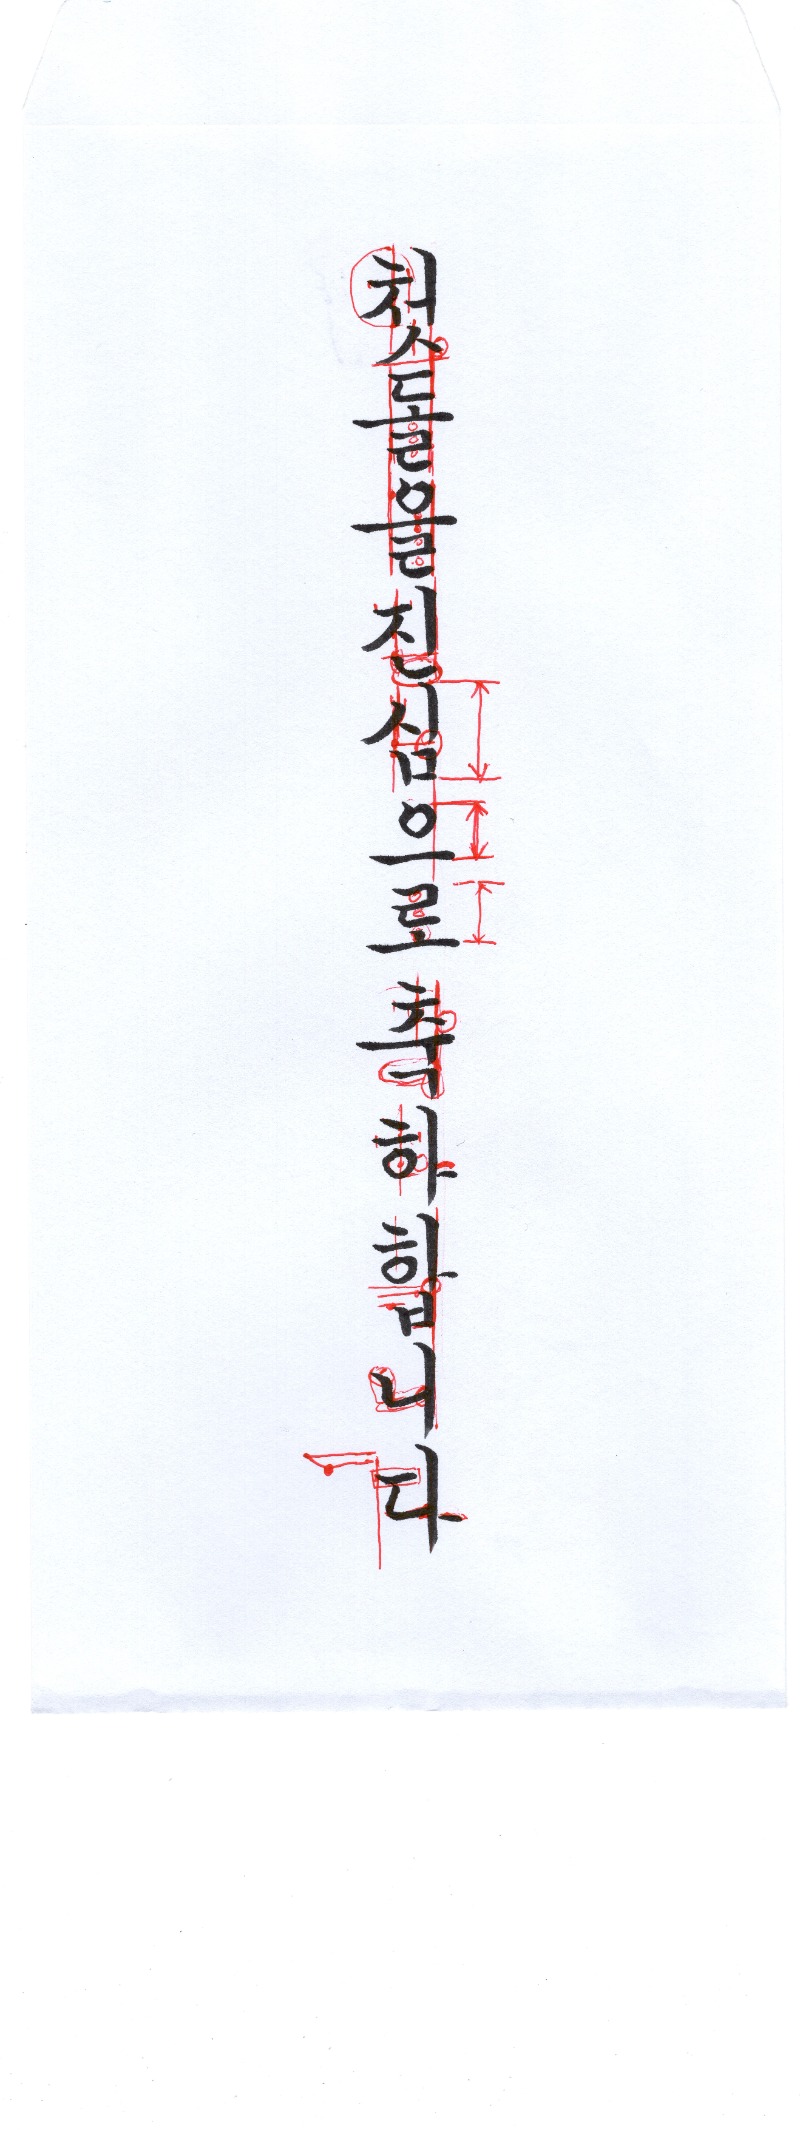 첫돌을진심으로 축하합니다